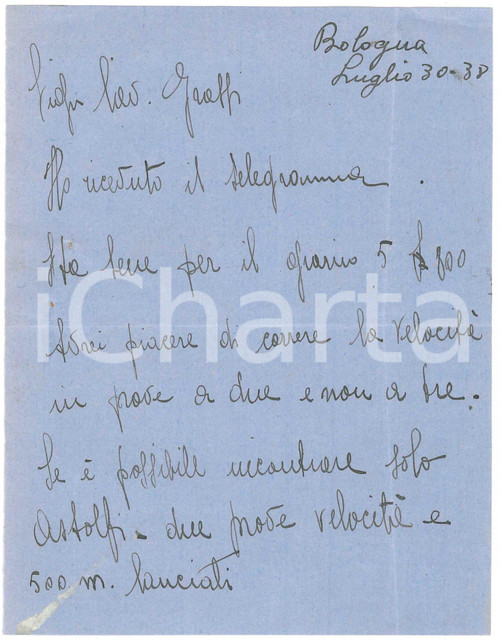 Bologna
Luglio 30-38
Sigr Cav. Grassi
Ho ricevuto il telegramma .
Sta bene per il giorno 5 £ 800
Avrei piacere di correre la velocità
in prove a due e non a tre.
Se è possibile incontrare solo
Astolfi - due prove velocità e
500 m. lanciati
iCharta